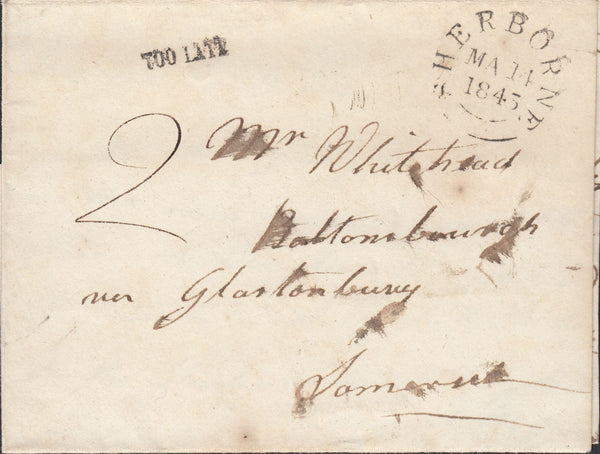 TOO LATE
SHERBORNE
MA 14
1845
2
Mr Whitehead
Baltonsbourgh
nr Glastonbury
Somerset